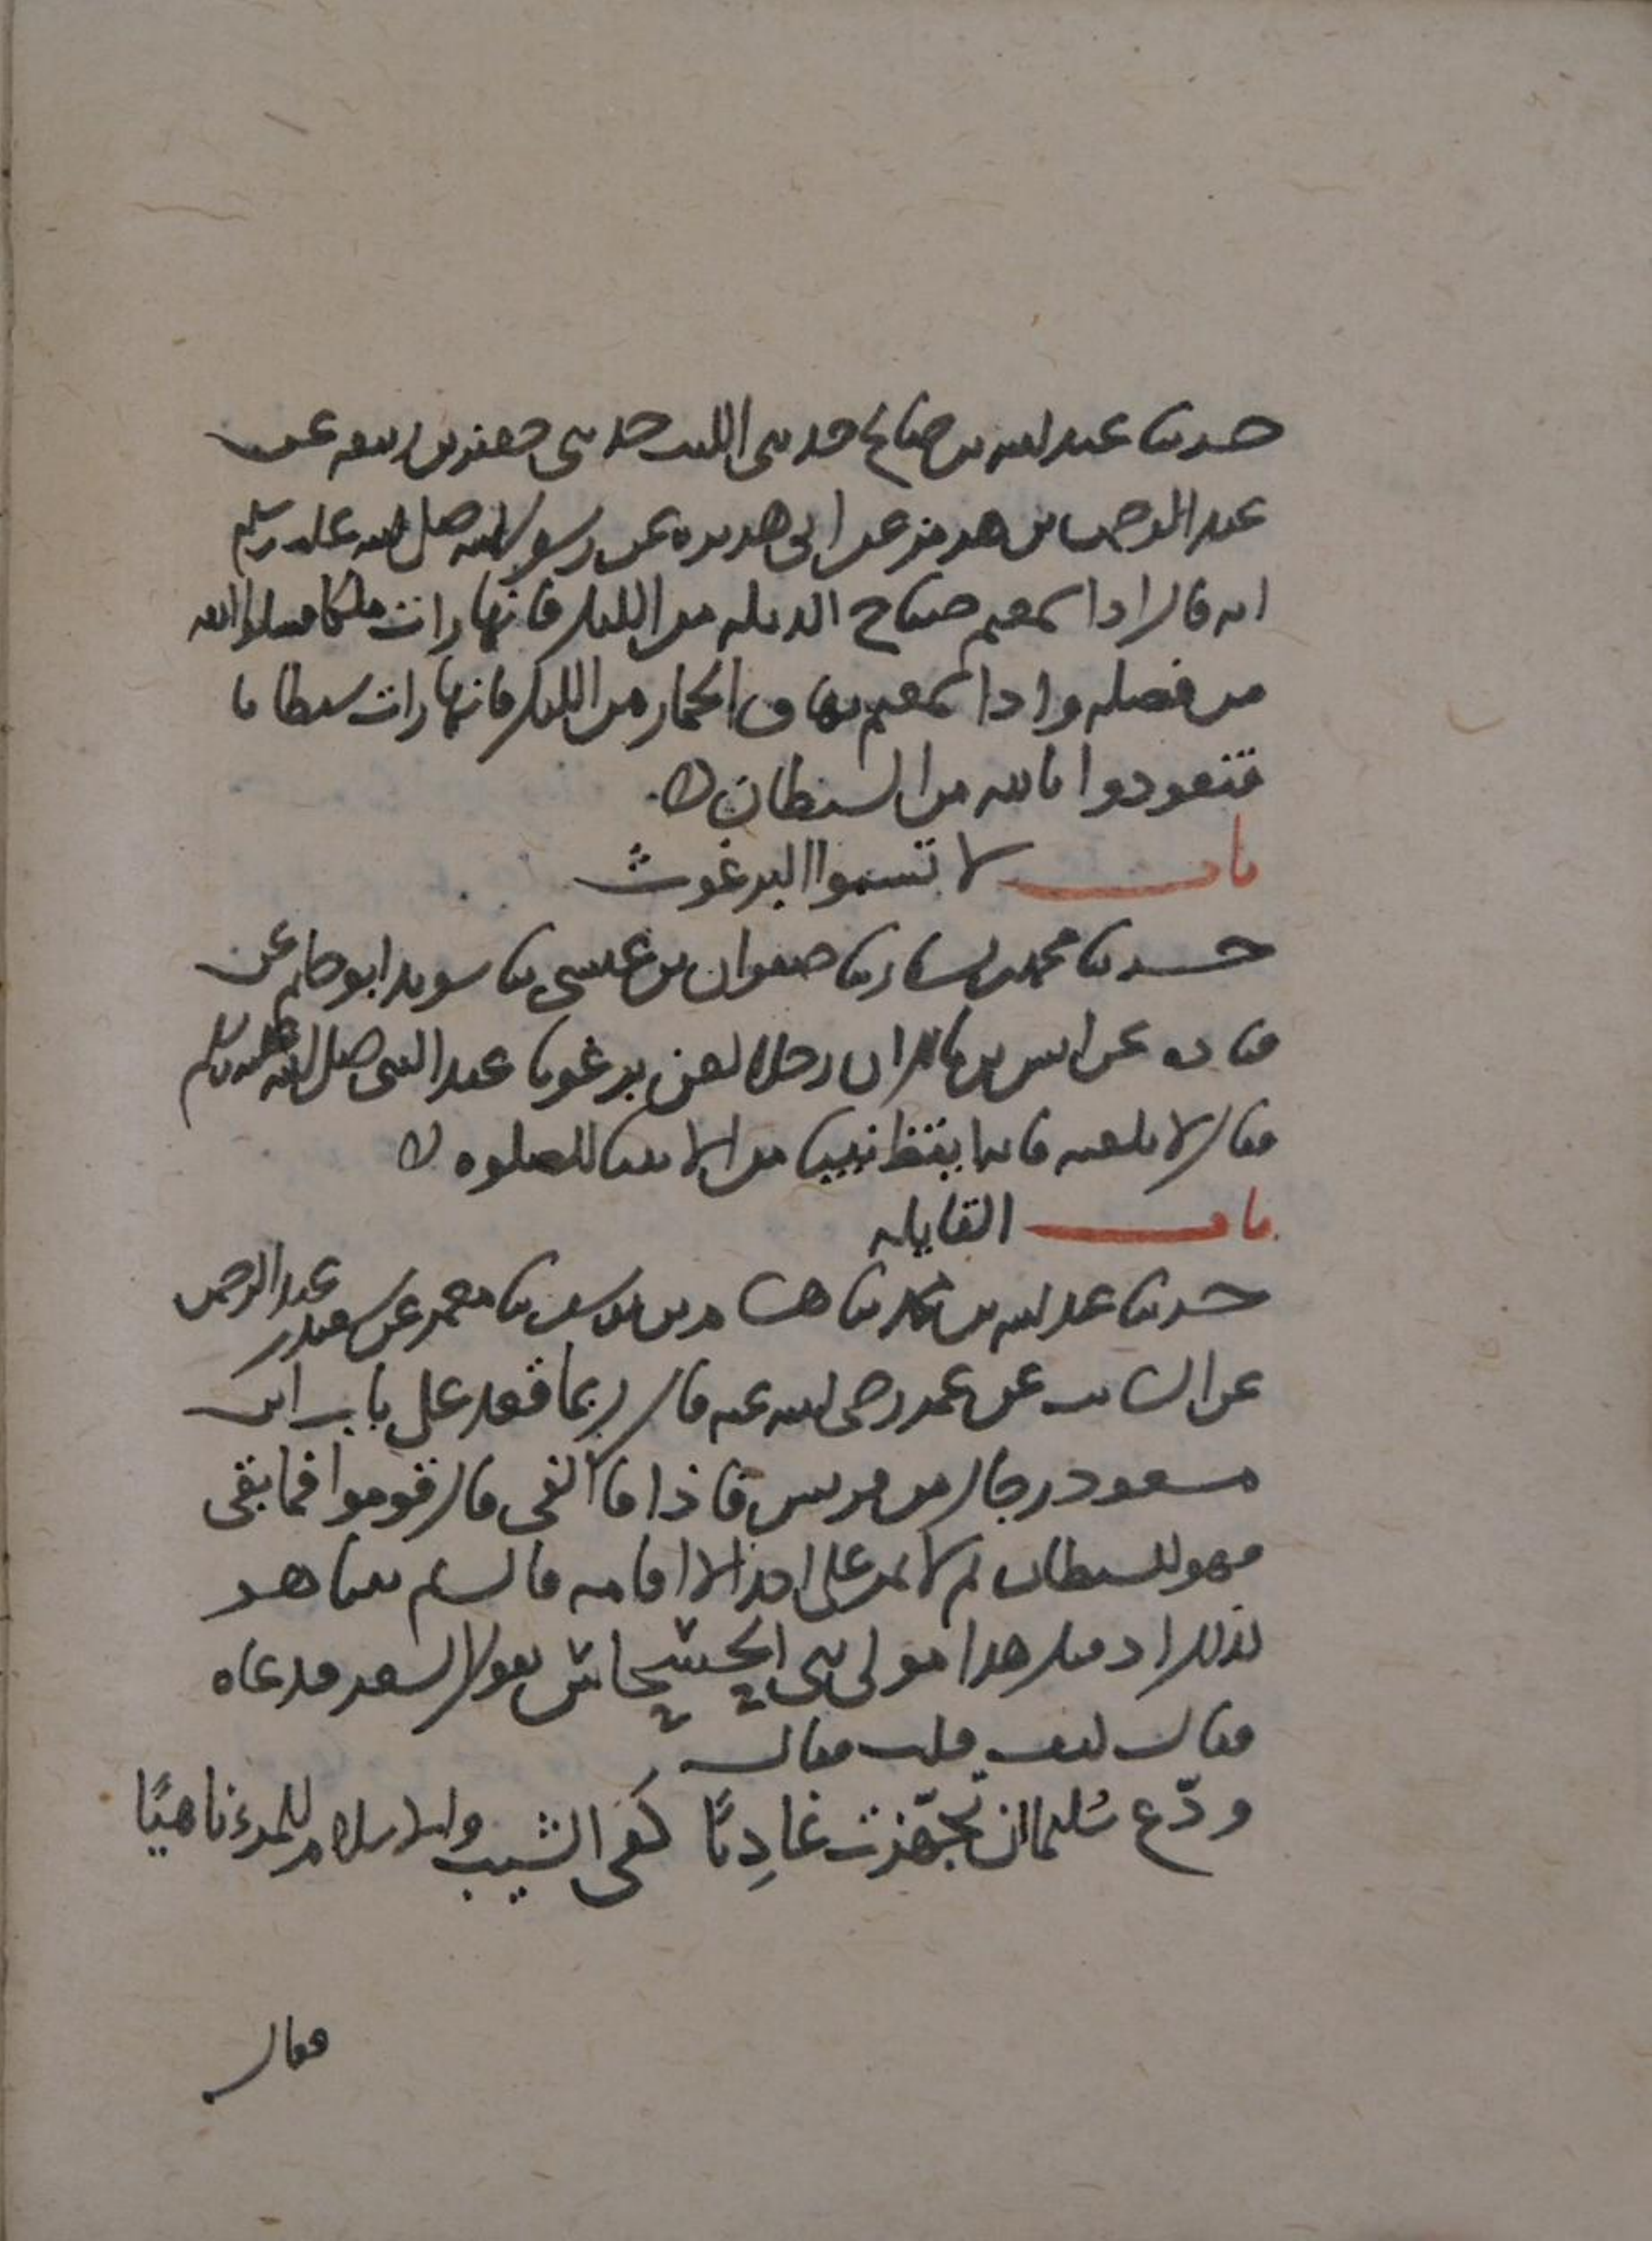 حدثنا عبد الله بن صالح حدثني الليث حدثني جعفر بن ربيعه عن
عبد الرحمن بن هرمز عن ابي هريره عن رسول الله صلى الله عليه وسلم
انه قال اذا سمعتم صياح الديكه من الليل فانها رات ملكا فسلوا الله
من فضله واذا سمعتم نهاق الحمار من الليل فانها رات شيطانا
فتعوذوا بالله من الشيطان ه
باب لا تسبوا البرغوث
حدثنا محمد بن بشار ثنا صفوان بن عيسى ثنا سويد ابو حاتم عن
قتاده عن انس بن مالك ان رجلا لعن برغوثا عند النبي صلى الله عليه وسلم
فقال لا تلعنه فانه ايقظ نبيا من الانبيا للصلوه ه
باب القايله
حدثنا عبد الله بن محمد ثنا هشام بن يوسف ثنا معمر عن سعيد بن عبد الرحمن
عن السايب عن عمر رضي الله عنه قال ربما قعد على باب ابن
مسعود رجال من قريش فاذا فا الفى قال قوموا فما بقى
فهو للشيطان ثم لا يمر على احد الا اقامه قال ثم بينا هو
كذلك اذ قيل هذا مولى بني الحسحاس يقول الشعر فدعاه
فقال كيف قلت فقال
ودّع سُليما ان تجهّزت غادِيًا كفى الشيب والاسلام للمرء ناهيًا
فقال